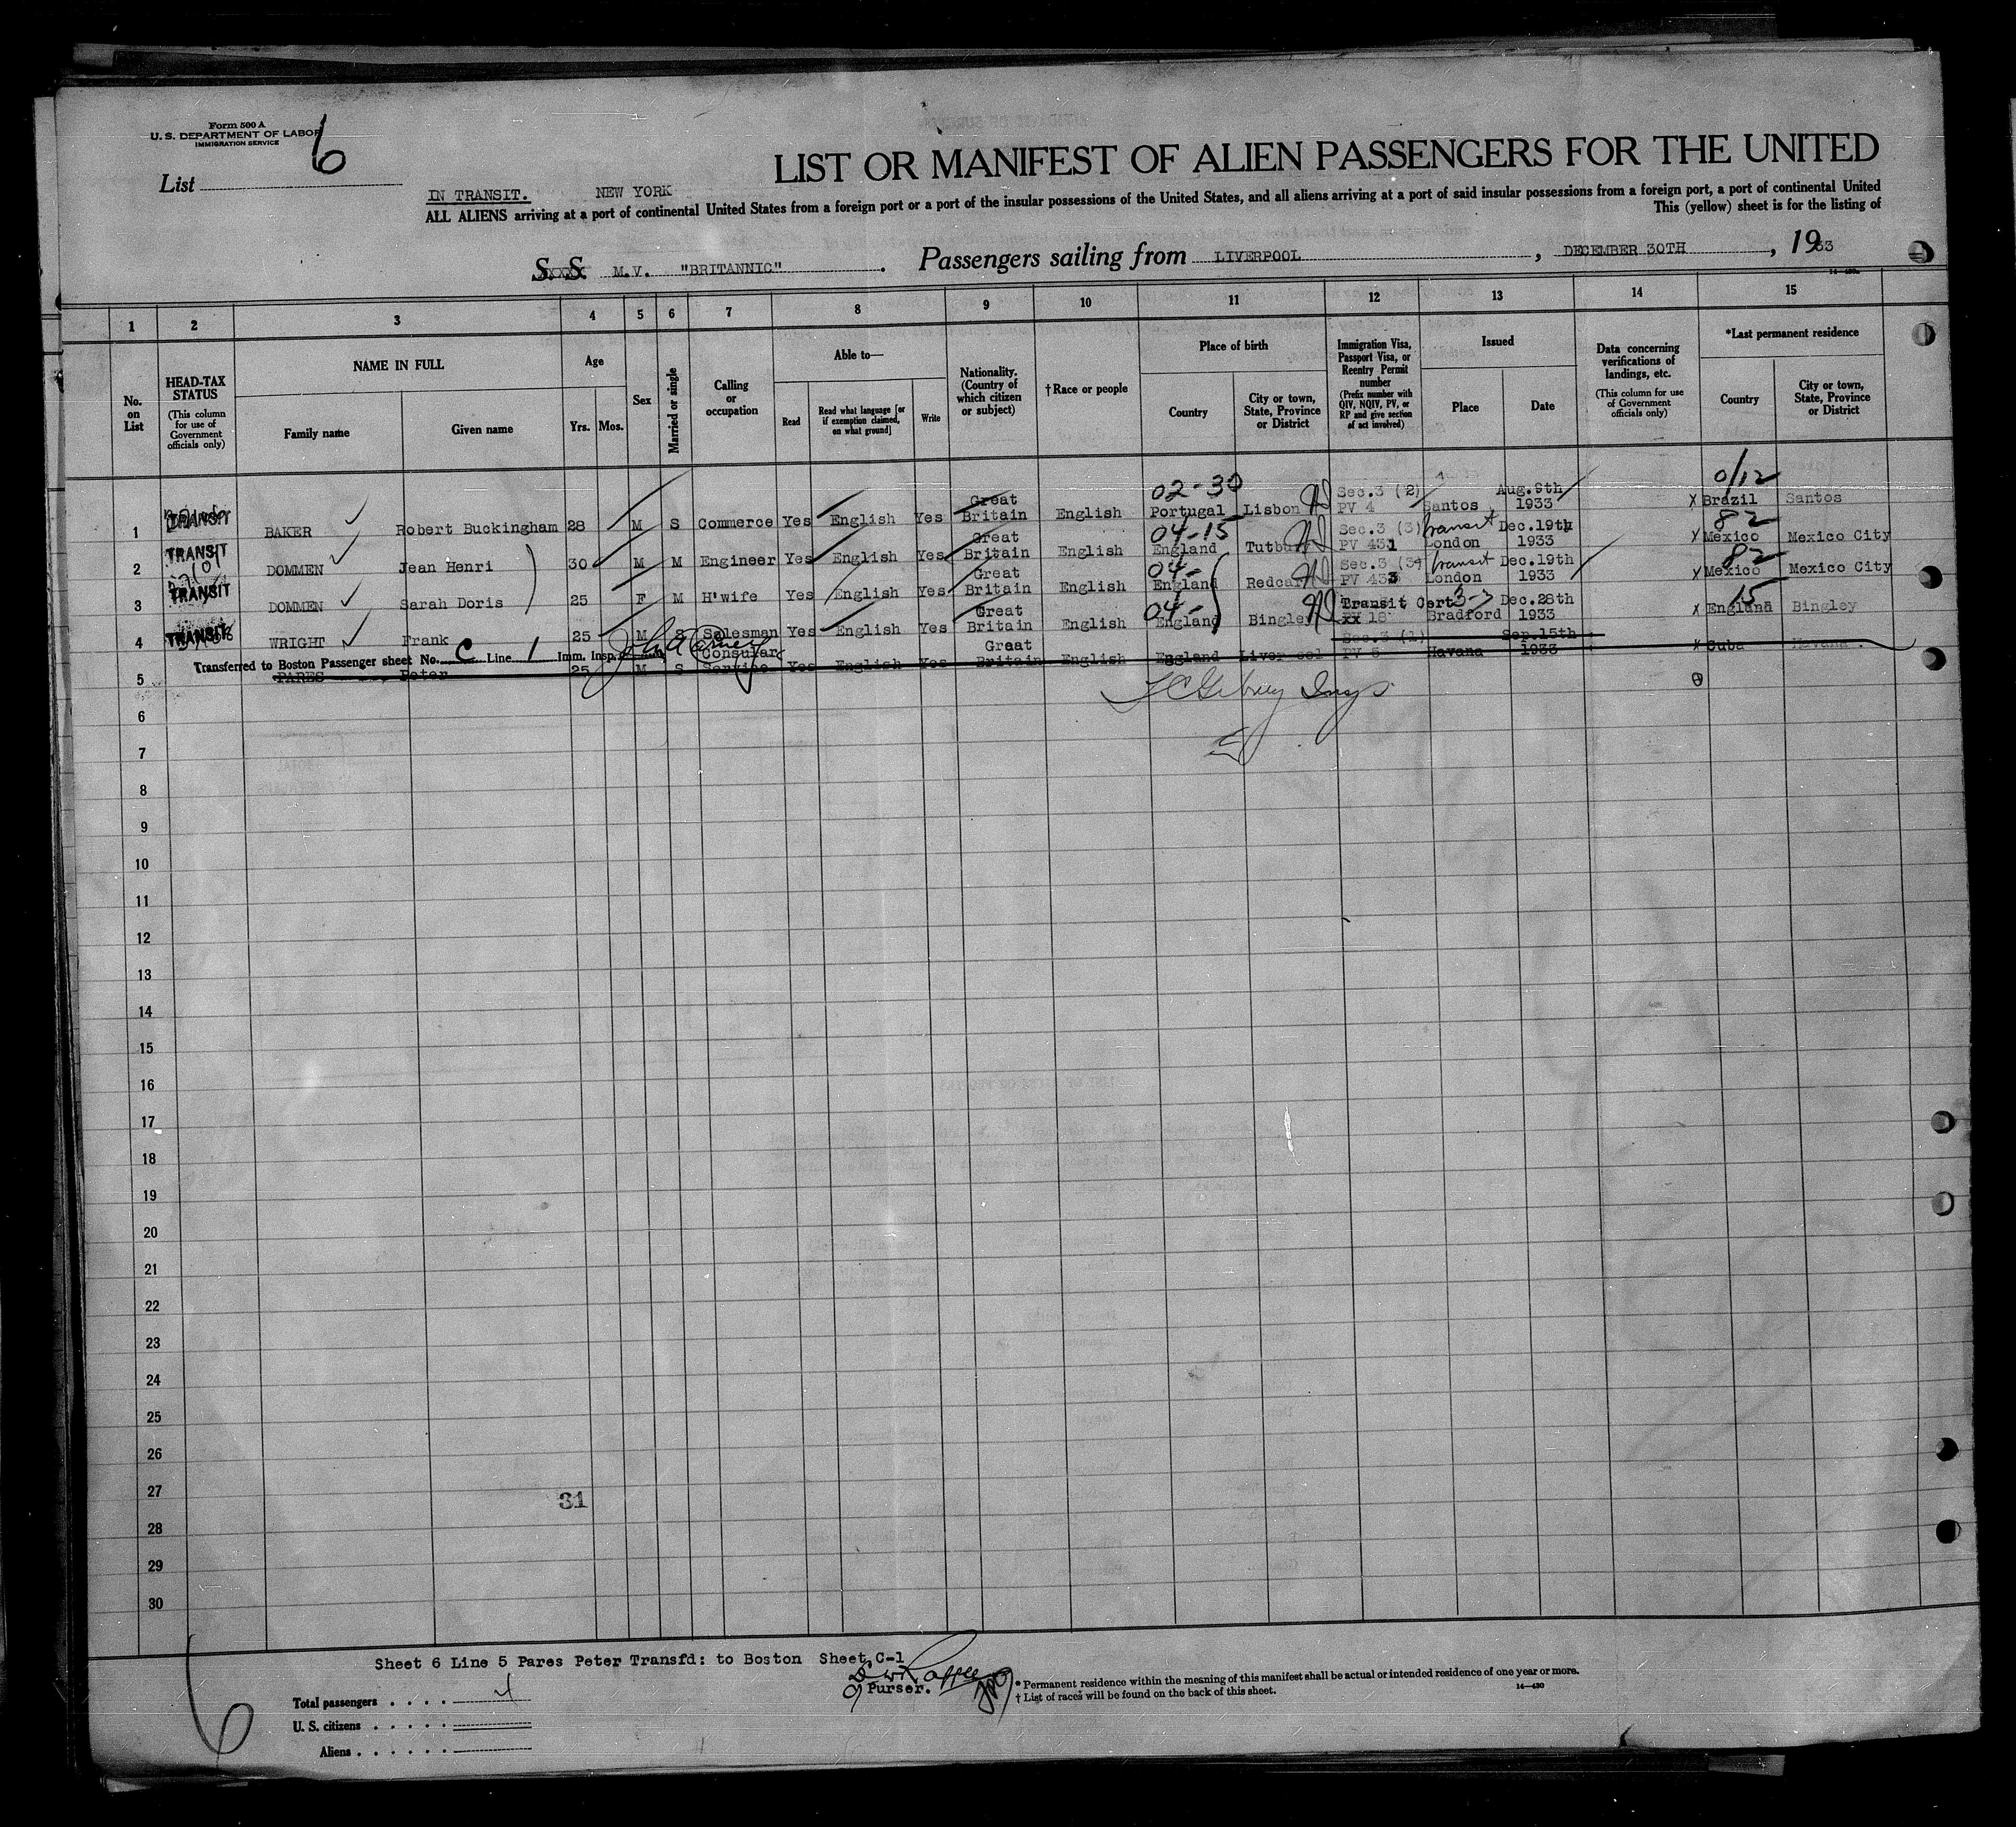 Form 500 A
U. S. DEPARTMENT OF LABOR
IMMIGRATION SERVICE
6
List
LIST OR MANIFEST OF ALIEN PASSENGERS FOR THE UNITED
IN TRANSIT. NEW YORK
ALL ALIENS arriving at a port of continental United States from a foreign port or a port of the insular possessions of the United States, and all aliens arriving at a port of said insular possessions from a foreign port, a port of continental United
This (yellow) sheet is for the listing of
S. S. M.V. "BRITANNIC" . Passengers sailing from LIVERPOOL , DECEMBER 30TH , 1933
1 2 3 4 5 6 7 8 9 10 11 12 13 14 15
No. on List
HEAD-TAX STATUS (This column for use of Government officials only)
NAME IN FULL
Family name
Given name
Age
Yrs. Mos.
Sex
Married or single
Calling or occupation
Able to—
Read
Read what language [or if exemption claimed, on what ground]
Write
Nationality. (Country of which citizen or subject)
†Race or people
Place of birth
Country
City or town, State, Province or District
Immigration Visa, Passport Visa, or Reentry Permit number (Prefix number with QIV, NQIV, PV, or RP and give section of act involved)
Issued
Place
Date
Data concerning verifications of landings, etc. (This column for use of Government officials only)
*Last permanent residence
Country
City or town, State, Province or District
02-30 0/12
1 TRANSIT BAKER Robert Buckingham 28 M S Commerce Yes English Yes Great Britain English Portugal Lisbon Sec.3 (2) PV 4 Santos Aug.9th 1933 x Brazil Santos
04-15 82
2 TRANSIT DOMMEN Jean Henri 30 M M Engineer Yes English Yes Great Britain English England Tutbury Sec.3 (3) transit PV 431 London Dec.19th 1933 x Mexico Mexico City
04- 82
3 TRANSIT DOMMEN Sarah Doris 25 F M H'wife Yes English Yes Great Britain English England Redcar Sec.3 (3) transit PV 433 London Dec.19th 1933 x Mexico Mexico City
04- 15
4 TRANSIT WRIGHT Frank 25 M S Salesman Yes English Yes Great Britain English England Bingley Transit Cert 3-7 xx 18 Bradford Dec.28th 1933 x England Bingley
Transferred to Boston Passenger sheet No. C Line 1 Imm. Insp.
5 PARES Peter 25 M S Consular Service Yes English Yes Great Britain English England Liverpool Sec.3 (1) PV 5 Havana Sep.15th 1933 x Cuba Havana.
6
7
8
9
10
11
12
13
14
15
16
17
18
19
20
21
22
23
24
25
26
27
31
28
29
30
Sheet 6 Line 5 Pares Peter Transfd: to Boston Sheet C-1
Purser.
Total passengers . . . . 4
U. S. citizens . . . . .
Aliens . . . . . .
6
* Permanent residence within the meaning of this manifest shall be actual or intended residence of one year or more.
† List of races will be found on the back of this sheet.
14—430